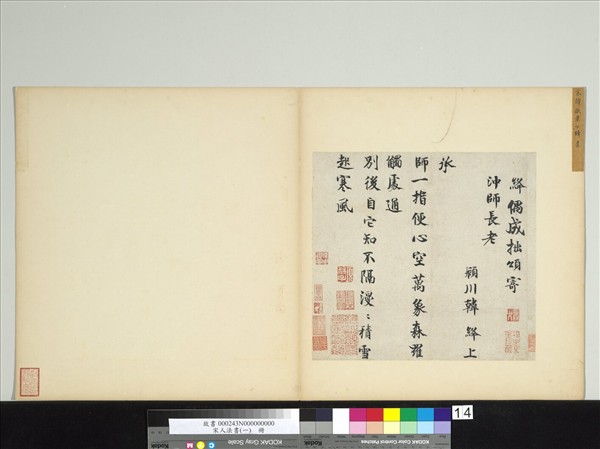 絳偶成拙頌寄
沖師長老
潁川韓絳上
承
師一指便心空萬象森羅
觸處通
別後自它知不隔漫〻積雪
起寒風
故書 000243N000000000
宋人法書(一) 冊
14
KODAK Gray Scale
Kodak Color Control Patches